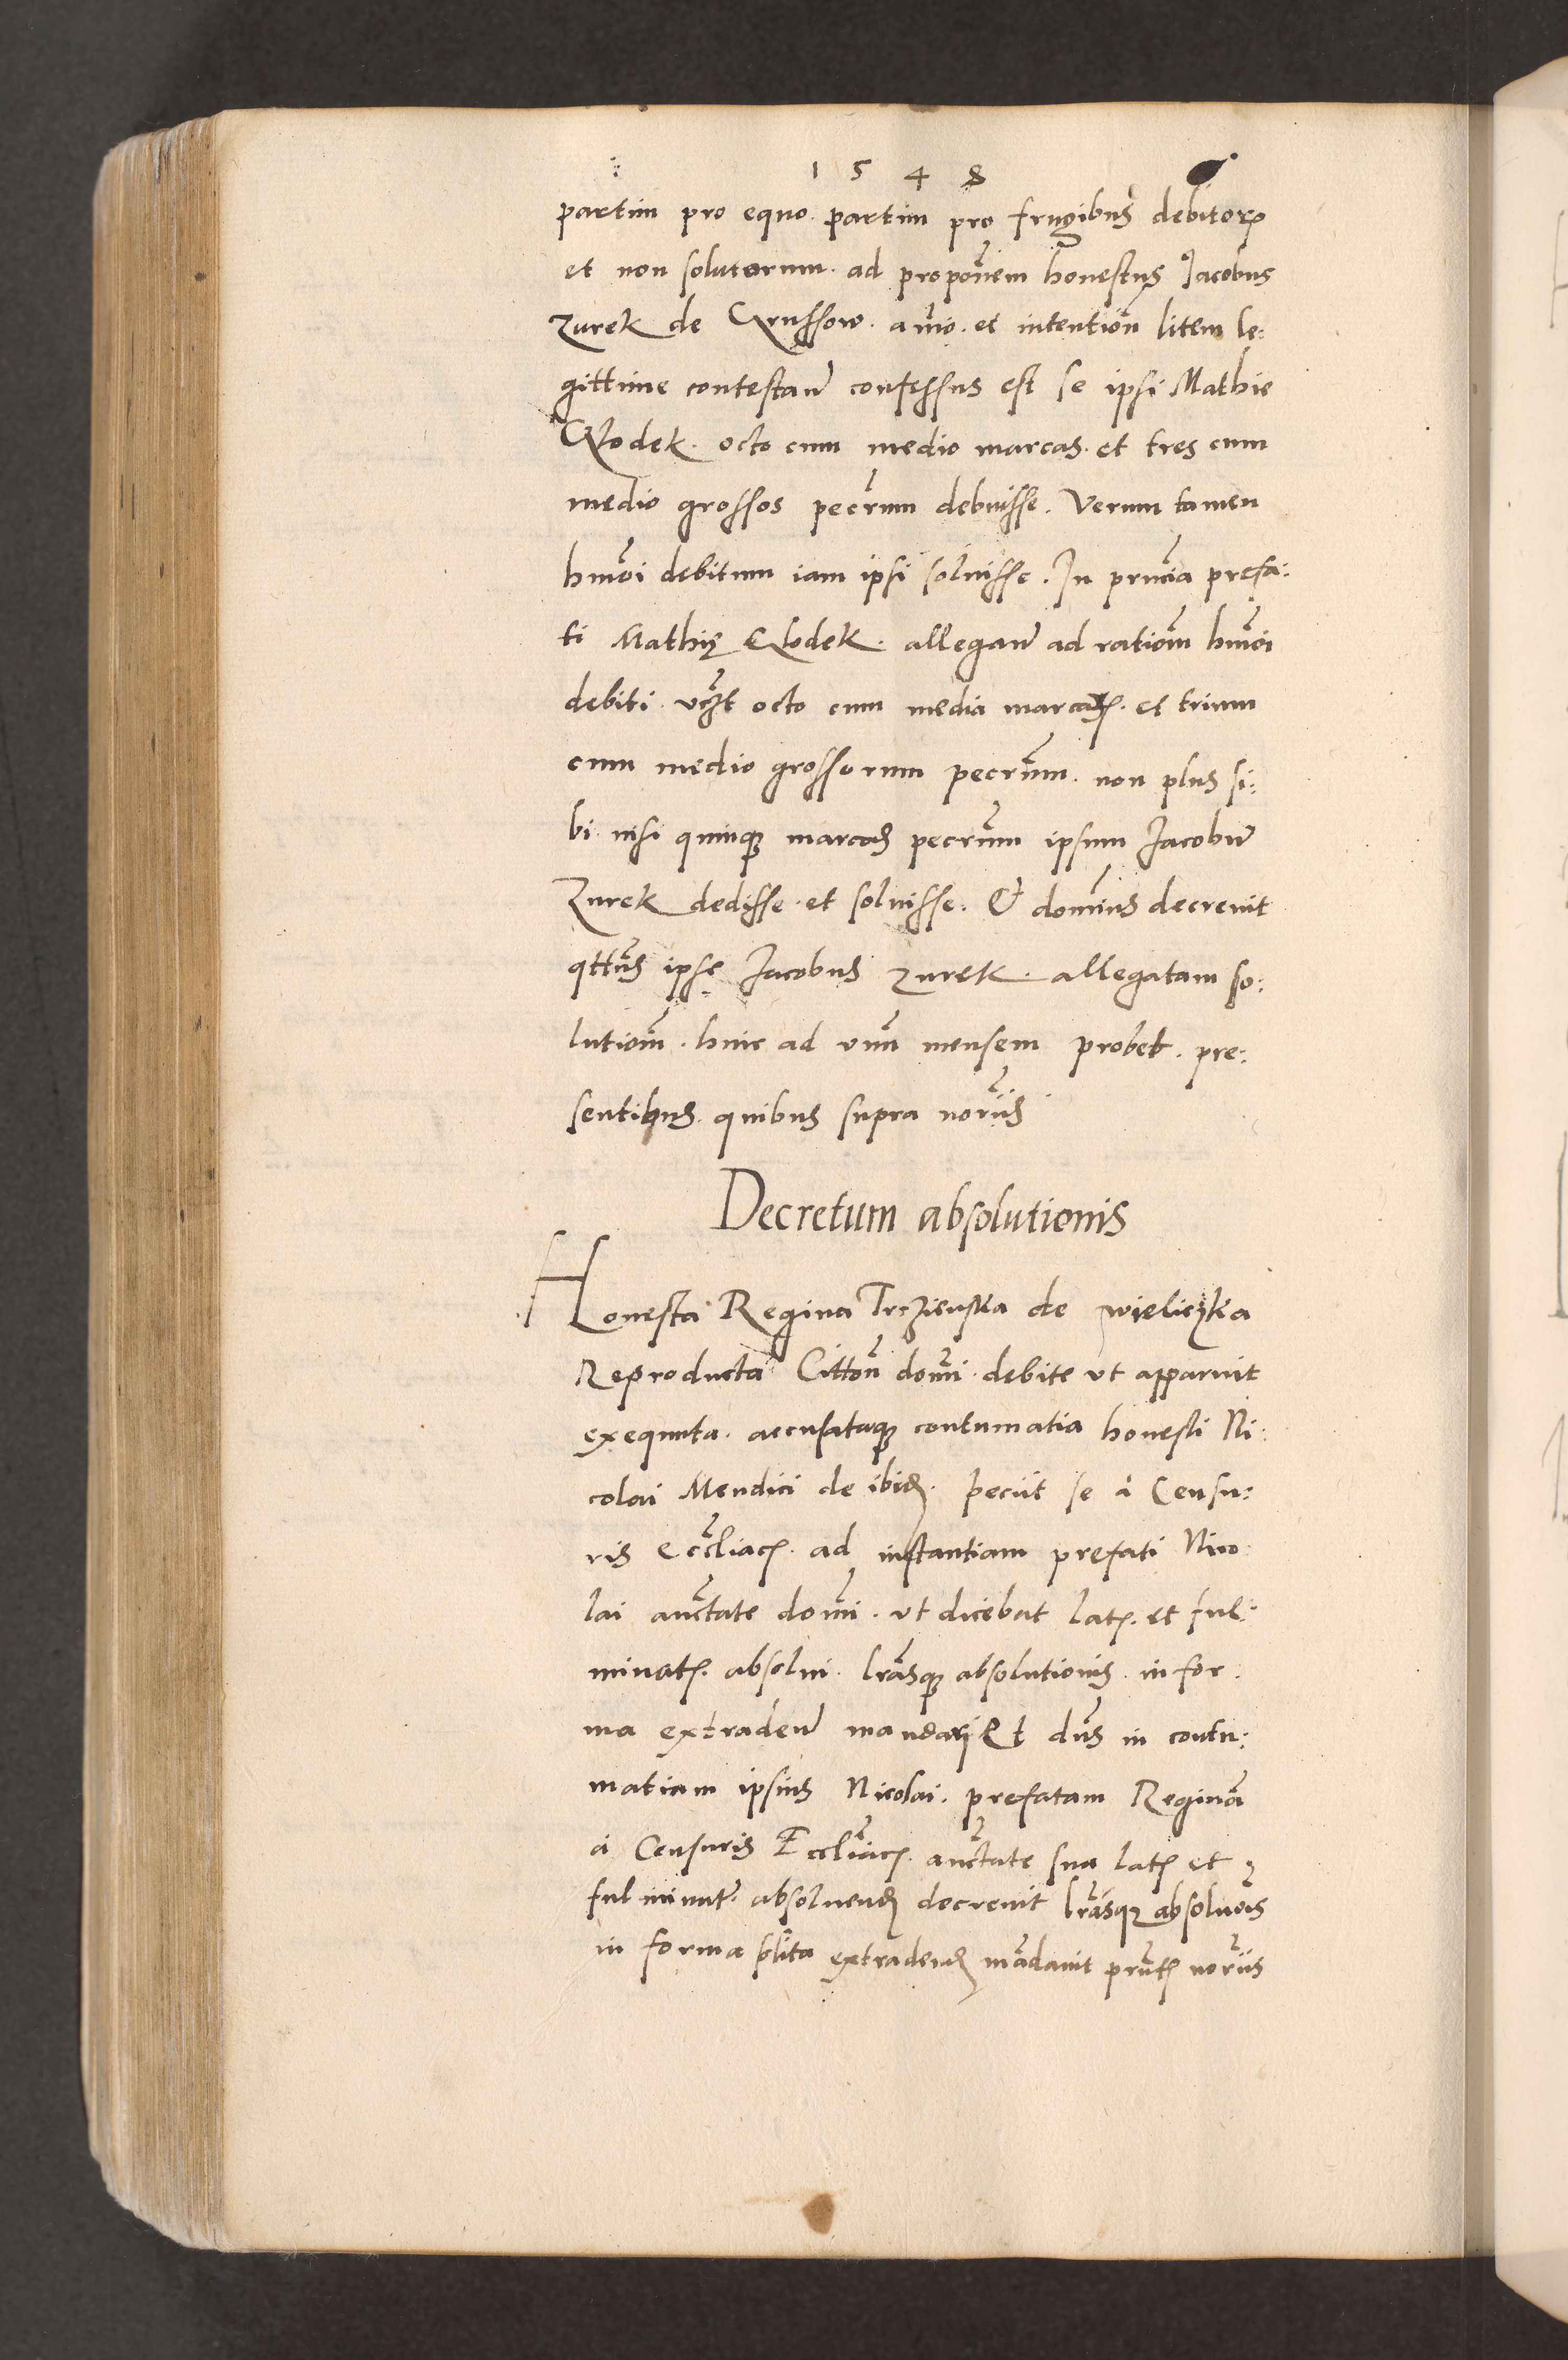 1548
partim pro equo partim pro frugibus debitorꝝ
et non solutorum. ad proponem honestus Jacobus
Zurek de Crussow. animo. et intention litem le:
gittime contestan confessus est se ipsi Mathie
Clodek. octo cum medio marcas. et tres cum
medio grossos pecrum debuisse. Verum tamen
hmoi debitum iam ipsi soluisse. In pruncia prefa:
ti Mathię Clodek. allegan ad rationem hmoi
debiti. vczt octo cum media marcaꝝ. et trium
cum medio grossorum pecrum. non plus si:
bi nisi quinqꝫ marcas pecrum ipsum Jacobum
Zurek dedisse et soluisse. Et dominus decreuit
qttus ipse Jacobus Zurek. allegatam so:
lutiom. hinc ad vnu mensem probet. pre:
sentibus quibus supra noriis
Decretum absolutionis
Honesta Regina de wieliczka
Reproducta Citton domi. debite vt apparuit
exequuta. accusataqꝫ contumatia honesti Ni:
colai Mendici de ibid. peciit se a Censu:
ris eccliac. ad instantiam prefati Nico:
lai auctate domi. vt dicebat lat. et ful:
minat. absolui. lrasqꝫ absolutionis. in for.
ma extraden mandari Et dns in contu:
matiam ipsius Nicolai. prefatam Regina
a Censuris Eccliac. auctate sua lat et
fulminat. absoluend decreuit lrasqꝫ absoluois
in forma solita extradend madauit prnt noriis